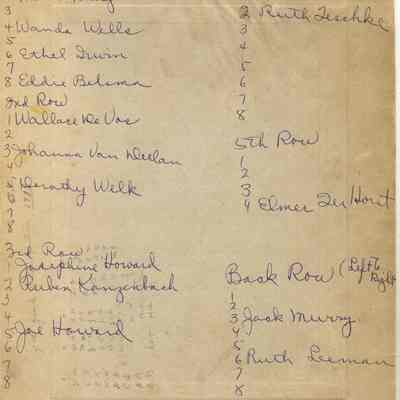 3
4 Wanda Wells
5
6 Ethel Irwin
7
8 Eddie Belsma
2nd Row
1 Wallace De Vos
2
3 Johanna Van
4
5 Dorothy Welk
6
7
8
3rd Row
1 Josephine Howard
2 Ruben Kanzenbach
3
4
5 Joe Howard
6
7
8
2 Ruth Teschke
3
4
5
6
7
8
5th Row
1
2
3
4 Elmer Ter Horst
Back Row (Left to Right
1
2
3 Jack Murry
4
5
6 Ruth Leeman
7
8